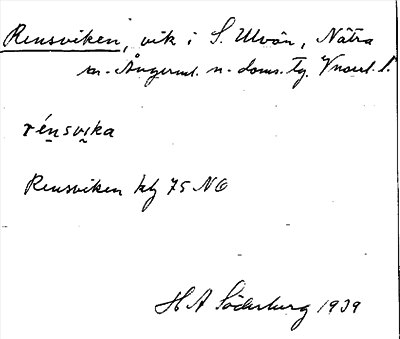 Rensviken, vik i S. Ulvön, Nätra
sn. Ångerml. n. doms. tg. Vnorrl. l.
rénsvika
Rensviken kbl 75 NO
H A Söderberg 1939